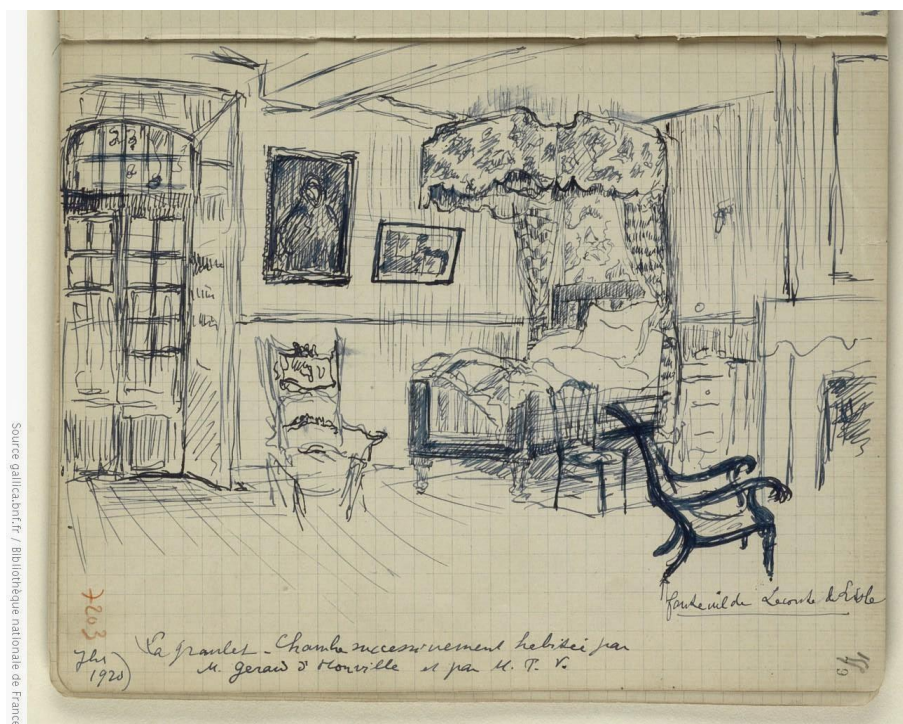 Source gallica.bnf.fr / Bibliothèque nationale de France
fauteuil de Leconte de Lisle
La Graulet - Chambre successivement habitée par
M. Gerard d'Houville et par M. P. V.
1920)
7203